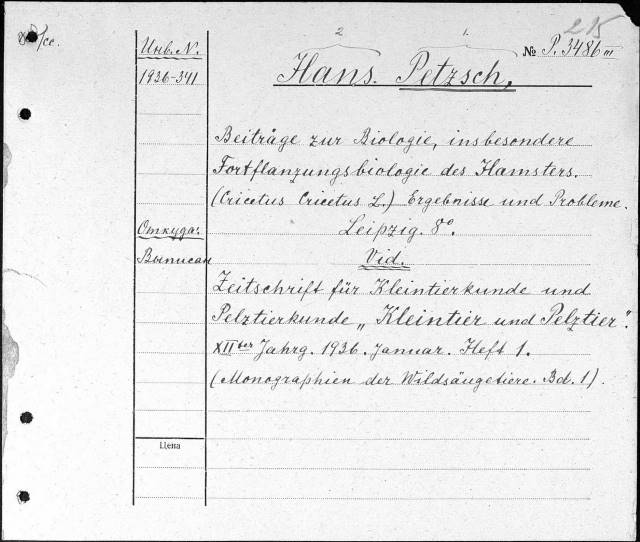 215
2 1.
Инв. N.
№ P. 3486 III
1936-341
Hans. Petzsch.
Beiträge zur Biologie, insbesondere
Fortflanzungsbiologie des Hamsters.
(Cricetus Cricetus L.) Ergebnisse und Probleme.
Откуда:
Leipzig. 8°.
Выписан
Vid.
Zeitschrift für Kleintierkunde und
Pelztierkunde „Kleintier und Pelztier".
XIIter Jahrg. 1936. Januar. Heft 1.
(Monographien der Wildsäugetiere. Bd. 1).
Цена